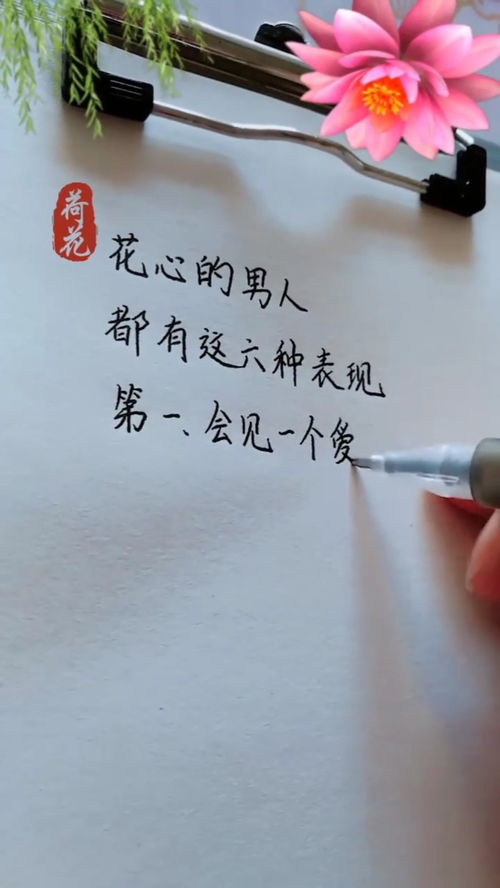 荷花
花心的男人
都有这六种表现
第一、会见一个爱